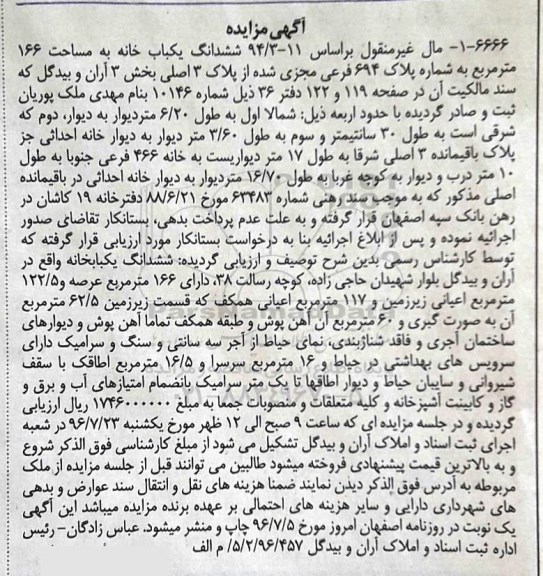 آگهی مزایده
۶۶۶۶-۱- مال غیرمنقول براساس ۱۱-۹۴/۳ ششدانگ یکباب خانه به مساحت ۱۶۶
مترمربع به شماره پلاک ۶۹۴ فرعی مجزی شده از پلاک ۳ اصلی بخش ۳ آران و بیدگل که
سند مالکیت آن در صفحه ۱۱۹ و ۱۲۲ دفتر ۳۶ ذیل شماره ۱۰۱۴۶ بنام مهدی ملک پوریان
ثبت و صادر گردیده با حدود اربعه ذیل: شمالا اول به طول ۶/۲۰ متردیوار به دیوار، دوم که
شرقی است به طول ۳۰ سانتیمتر و سوم به طول ۳/۶۰ متر دیوار به دیوار خانه احداثی جز
پلاک باقیمانده ۳ اصلی شرقا به طول ۱۷ متر دیواریست به خانه ۴۶۶ فرعی جنوبا به طول
۱۰ متر درب و دیوار به کوچه غربا به طول ۱۶/۷۰ متردیوار به دیوار خانه احداثی در باقیمانده
اصلی مذکور که به موجب سند رهنی شماره ۶۳۴۸۳ مورخ ۸۸/۶/۲۱ دفترخانه ۱۹ کاشان در
رهن بانک سپه اصفهان قرار گرفته و به علت عدم پرداخت بدهی، بستانکار تقاضای صدور
اجرائیه نموده و پس از ابلاغ اجرائیه بنا به درخواست بستانکار مورد ارزیابی قرار گرفته که
توسط کارشناس رسمی بدین شرح توصیف و ارزیابی گردیده: ششدانگ یکبابخانه واقع در
آران و بیدگل بلوار شهیدان حاجی زاده، کوچه رسالت ۳۸، دارای ۱۶۶ مترمربع عرصه و۱۲۲/۵
مترمربع اعیانی زیرزمین و ۱۱۷ مترمربع اعیانی همکف که قسمت زیرزمین ۶۲/۵ مترمربع
آن به صورت گبری و ۶۰ مترمربع آن آهن پوش و طبقه همکف تماما آهن پوش و دیوارهای
ساختمان آجری و فاقد شناژبندی، نمای حیاط از آجر سه سانتی و سنگ و سرامیک دارای
سرویس های بهداشتی در حیاط و ۱۶ مترمربع سرسرا و ۱۶/۵ مترمربع اطاقک با سقف
شیروانی و سایبان حیاط و دیوار اطاقها تا یک متر سرامیک بانضمام امتیازهای آب و برق و
گاز و کابینت آشپزخانه و کلیه متعلقات و منصوبات جمعا به مبلغ ۱۷۴۶۰۰۰۰۰۰ ریال ارزیابی
گردیده و در جلسه مزایده ای که ساعت ۹ صبح الی ۱۲ ظهر مورخ یکشنبه ۹۶/۷/۲۳ در شعبه
اجرای ثبت اسناد و املاک آران و بیدگل تشکیل می شود از مبلغ کارشناسی فوق الذکر شروع
و به بالاترین قیمت پیشنهادی فروخته میشود طالبین می توانند قبل از جلسه مزایده از ملک
مربوطه به آدرس فوق الذکر دیدن نمایند ضمنا هزینه های نقل و انتقال سند عوارض و بدهی
های شهرداری دارایی و سایر هزینه های احتمالی بر عهده برنده مزایده میباشد این آگهی
یک نوبت در روزنامه اصفهان امروز مورخ ۹۶/۷/۵ چاپ و منشر میشود. عباس زادگان- رئیس
اداره ثبت اسناد و املاک آران و بیدگل ۵/۲/۹۶/۴۵۷/ م الف